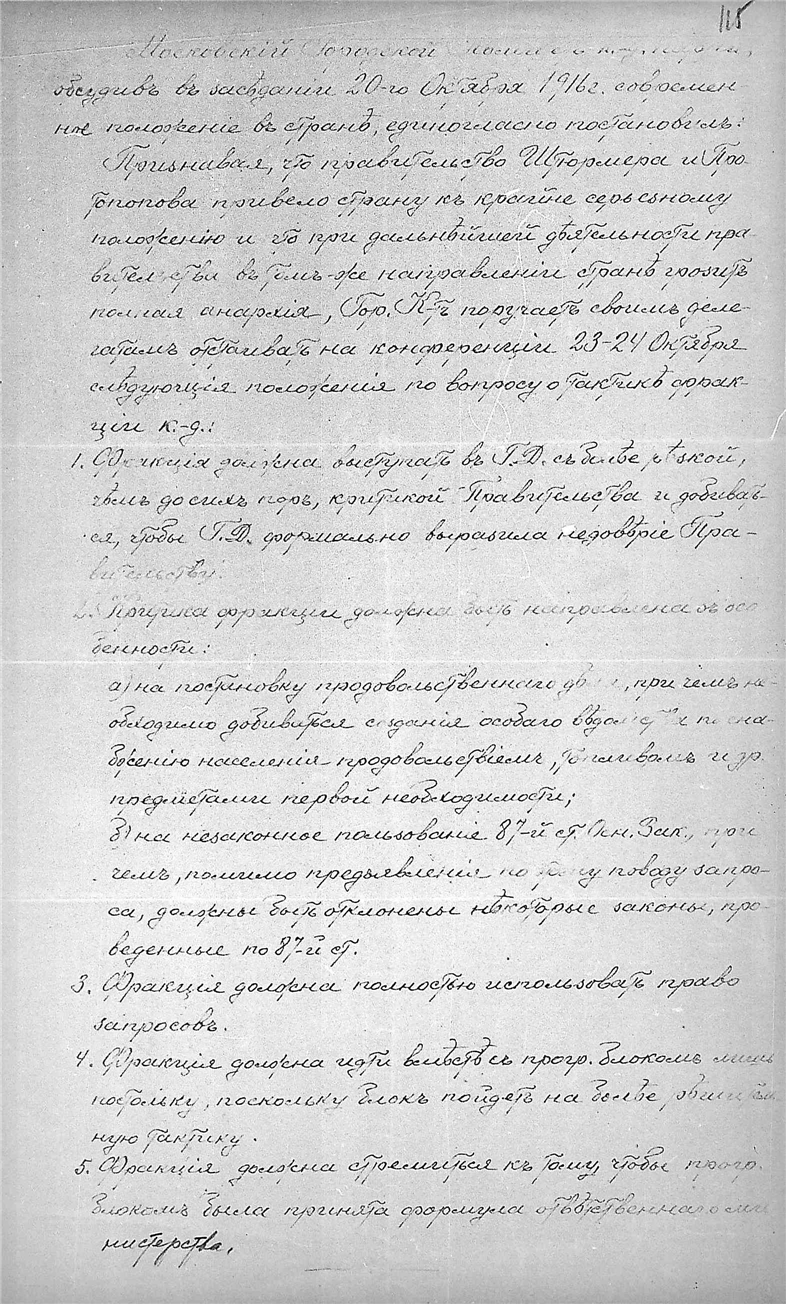 115
Московскій Городской
обсудивъ въ засѣданіи 20-го Октября 1916г. современ-
ное положеніе въ странѣ, единогласно постановилъ:
Признавая, что правительство Штюрмера и Про-
топопова привело страну къ крайне серьезному
положенію и что при дальнѣйшей дѣятельности пра-
вительства въ томъ-же направленіи странѣ грозитъ
полная анархія, Гор. К-тъ поручаетъ своимъ деле-
гатамъ отстаивать на конференціи 23-24 Октября
слѣдующія положенія по вопросу о тактикѣ фрак-
ціи к.-д.:
1. Фракція должна выступать въ Г.Д. съ болѣе рѣзкой,
чѣмъ до сихъ поръ, критикой Правительства и добивать-
ся, чтобы Г.Д. формально выразила недовѣріе Пра-
вительству.
2. Критика фракціи должна быть направлена въ осо
бенности:
а) на постановку продовольственнаго дѣла, при чемъ не-
обходимо добиваться созданія особаго вѣдомства по сна-
бженію населенія продовольствіемъ, топливомъ и др.
предметами первой необходимости;
б) на незаконное пользованіе 87-й ст. Осн. Зак., при
чемъ, помимо предъявленія по этому поводу запро-
са, должны быть отклонены нѣкоторые законы, про-
веденные по 87-й ст.
3. Фракція должна полностью использовать право
запросовъ.
4. Фракція должна идти вмѣстѣ съ прогр. блокомъ лишь
постольку, поскольку блокъ пойдетъ на болѣе рѣшитель-
ную тактику.
5. Фракція должна стремиться къ тому, чтобы прогр.
блокомъ была принята формула отвѣтственнаго ми
нистерства.